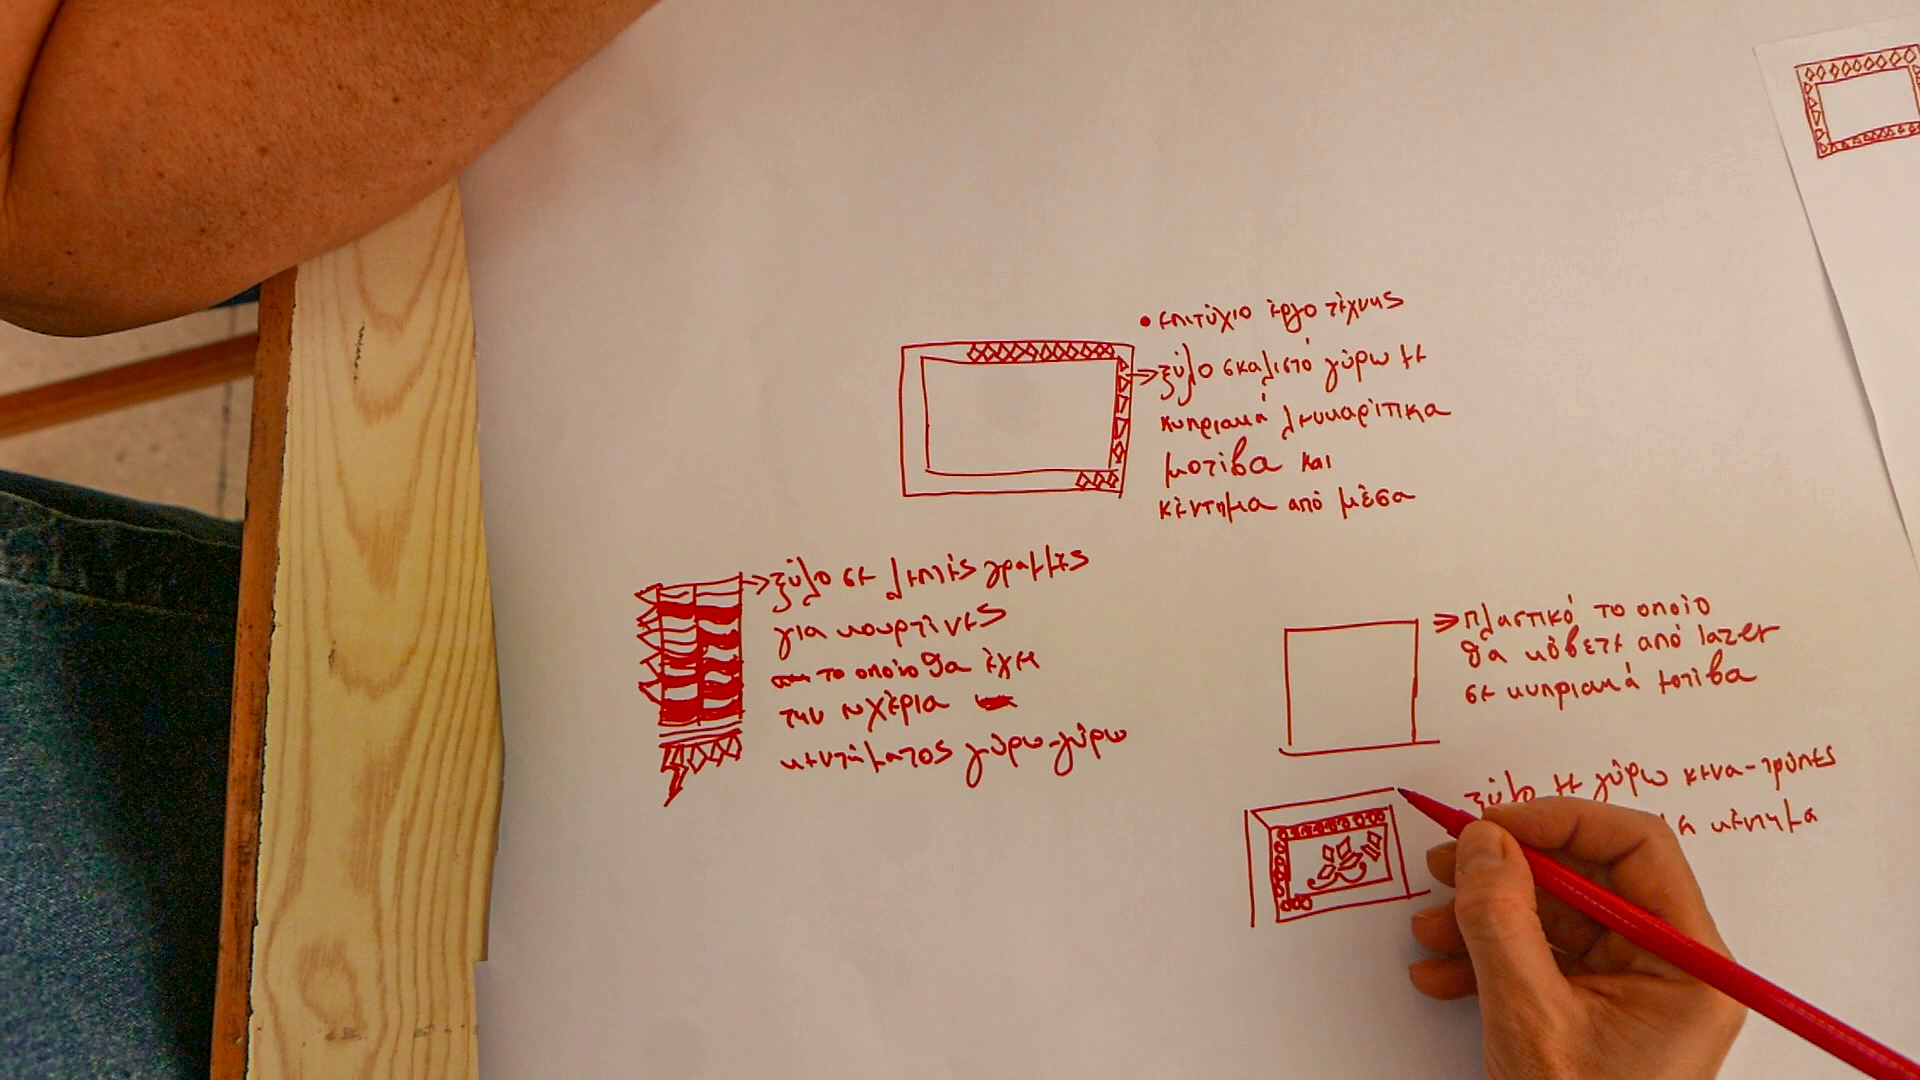 • επιτύχιο έργο τέχνης
ξύλο σκαλιστό γύρω με
κυπριακά λευκαρίτικα
μοτίβα και
κέντημα από μέσα
ξύλο σε λεπτές γραμμές
για κουρτίνες
το οποίο θα έχει
την
κεντήματος γύρω-γύρω
πλαστικό το οποίο
θα κόβετε από lazer
σε κυπριακά μοτίβα
ξύλο με γύρω κενα-τρύπες
κέντημα